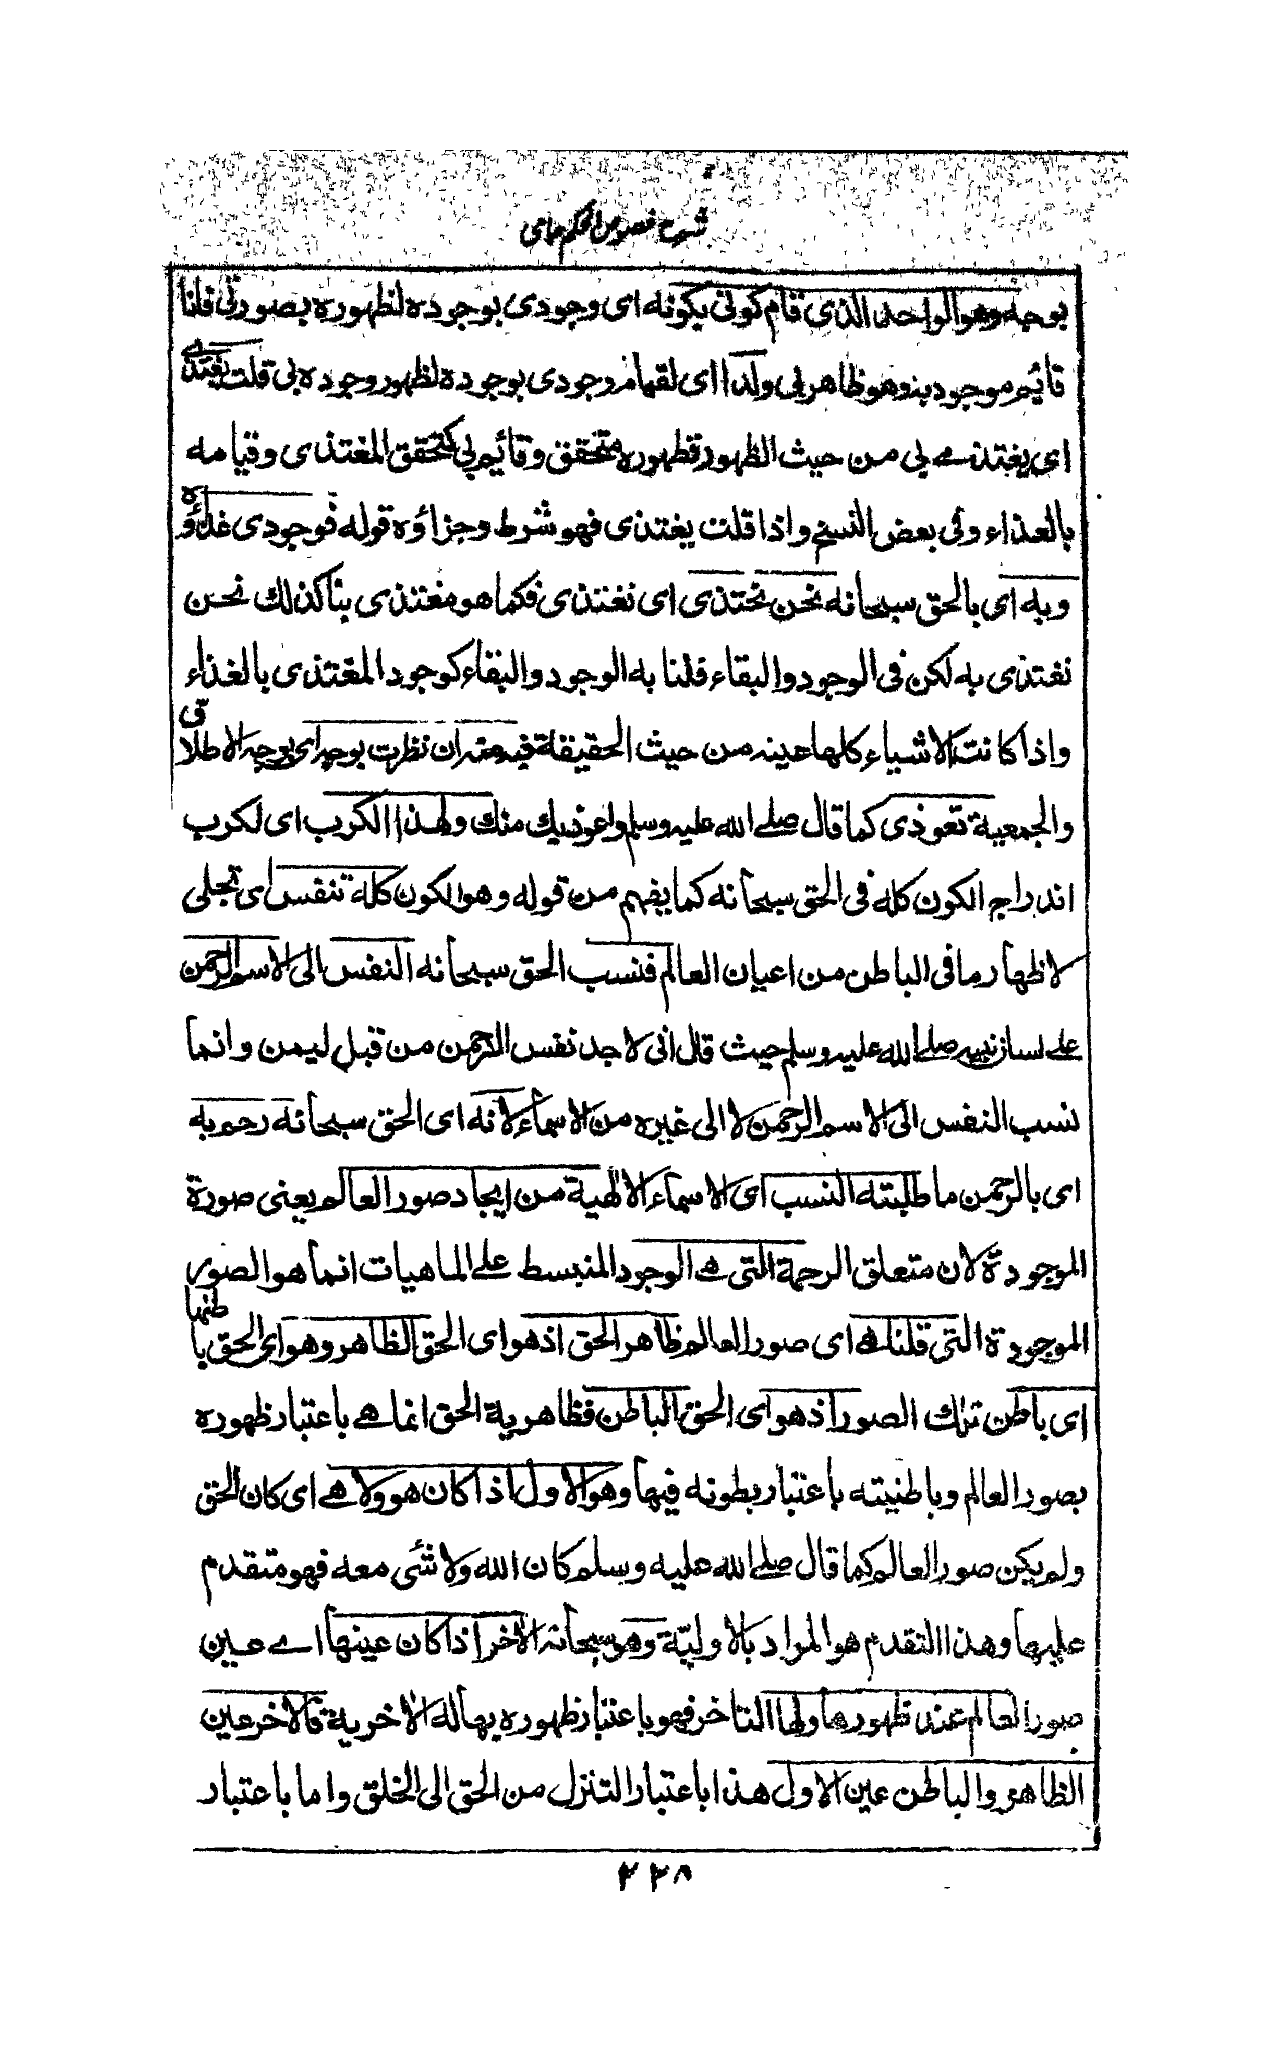 شرح فصوص الحكم جامى
بوجه وهو الواحد الذى قام كونى بكونه اى وجودى بوجوده لظهوره بصورتى فانا
قائم موجود به وهو ظاهر بى ولذا اى لقيام وجودى بوجوده لظهور وجوده بى قلت يغتذى
اى يغتذى بى من حيث الظهور فظهوره متحقق وقائم بى كتحقق المغتذى وقيامه
بالغذاء وفى بعض النسخ واذا قلت يغتذى فهو شرط وجزاؤه قوله فوجودى غذاؤه
وبه اى بالحق سبحانه نحن نحتذى اى نغتذى فكما هو مغتذى بنا كذلك نحن
نغتذى به لكن فى الوجود والبقاء فلنا به الوجود والبقاء كوجود المغتذى بالغذاء
واذا كانت الاشياء كلها عينه من حيث الحقيقة فبه منه ان نظرت بوجه اى بوجه الاطلاق
والجمعية تعوذى كما قال صلى الله عليه وسلم واعوذ بك منك ولهذا الكرب اى لكرب
اندراج الكون كله فى الحق سبحانه كما يفهم من قوله وهو الكون كله تنفس اى تجلى
لاظهار ما فى الباطن من اعيان العالم فنسب الحق سبحانه النفس الى الاسم الرحمن
على لسان نبيه صلى الله عليه وسلم حيث قال انى لاجد نفس الرحمن من قبل ليمن وانما
نسب النفس الى الاسم الرحمن لا الى غيره من الاسماء لانه اى الحق سبحانه رحم به
اى بالرحمن ما طلبته النسب اى الاسماء الالهية من ايجاد صور العالم يعنى صورة
الموجودة لان متعلق الرحمة التى هى الوجود المنبسط على الماهيات انما هو الصور
الموجودة التى قلنا هى اى صور العالم ظاهر الحق اذ هو اى الحق الظاهر وهو اى الحق باطنها
اى باطن تلك الصور اذ هو اى الحق الباطن فظاهرية الحق انما هى باعتبار ظهوره
بصور العالم وباطنيته باعتبار بطونه فيها وهو الاول اذ كان هو ولا هى اى كان الحق
ولم يكن صور العالم كما قال صلى الله عليه وسلم كان الله ولا شئى معه فهو متقدم
عليها وهذا التقدم هو المراد بالاولية وهو سبحانه الاخر اذ كان عينها اى عين
صور العالم عند ظهورها ولها التاخر فهو باعتبار ظهوره بها له الاخرية فالاخر عين
الظاهر والباطن عين الاول هذا باعتبار التنزل من الحق الى الخلق واما باعتبار
٢٢٨